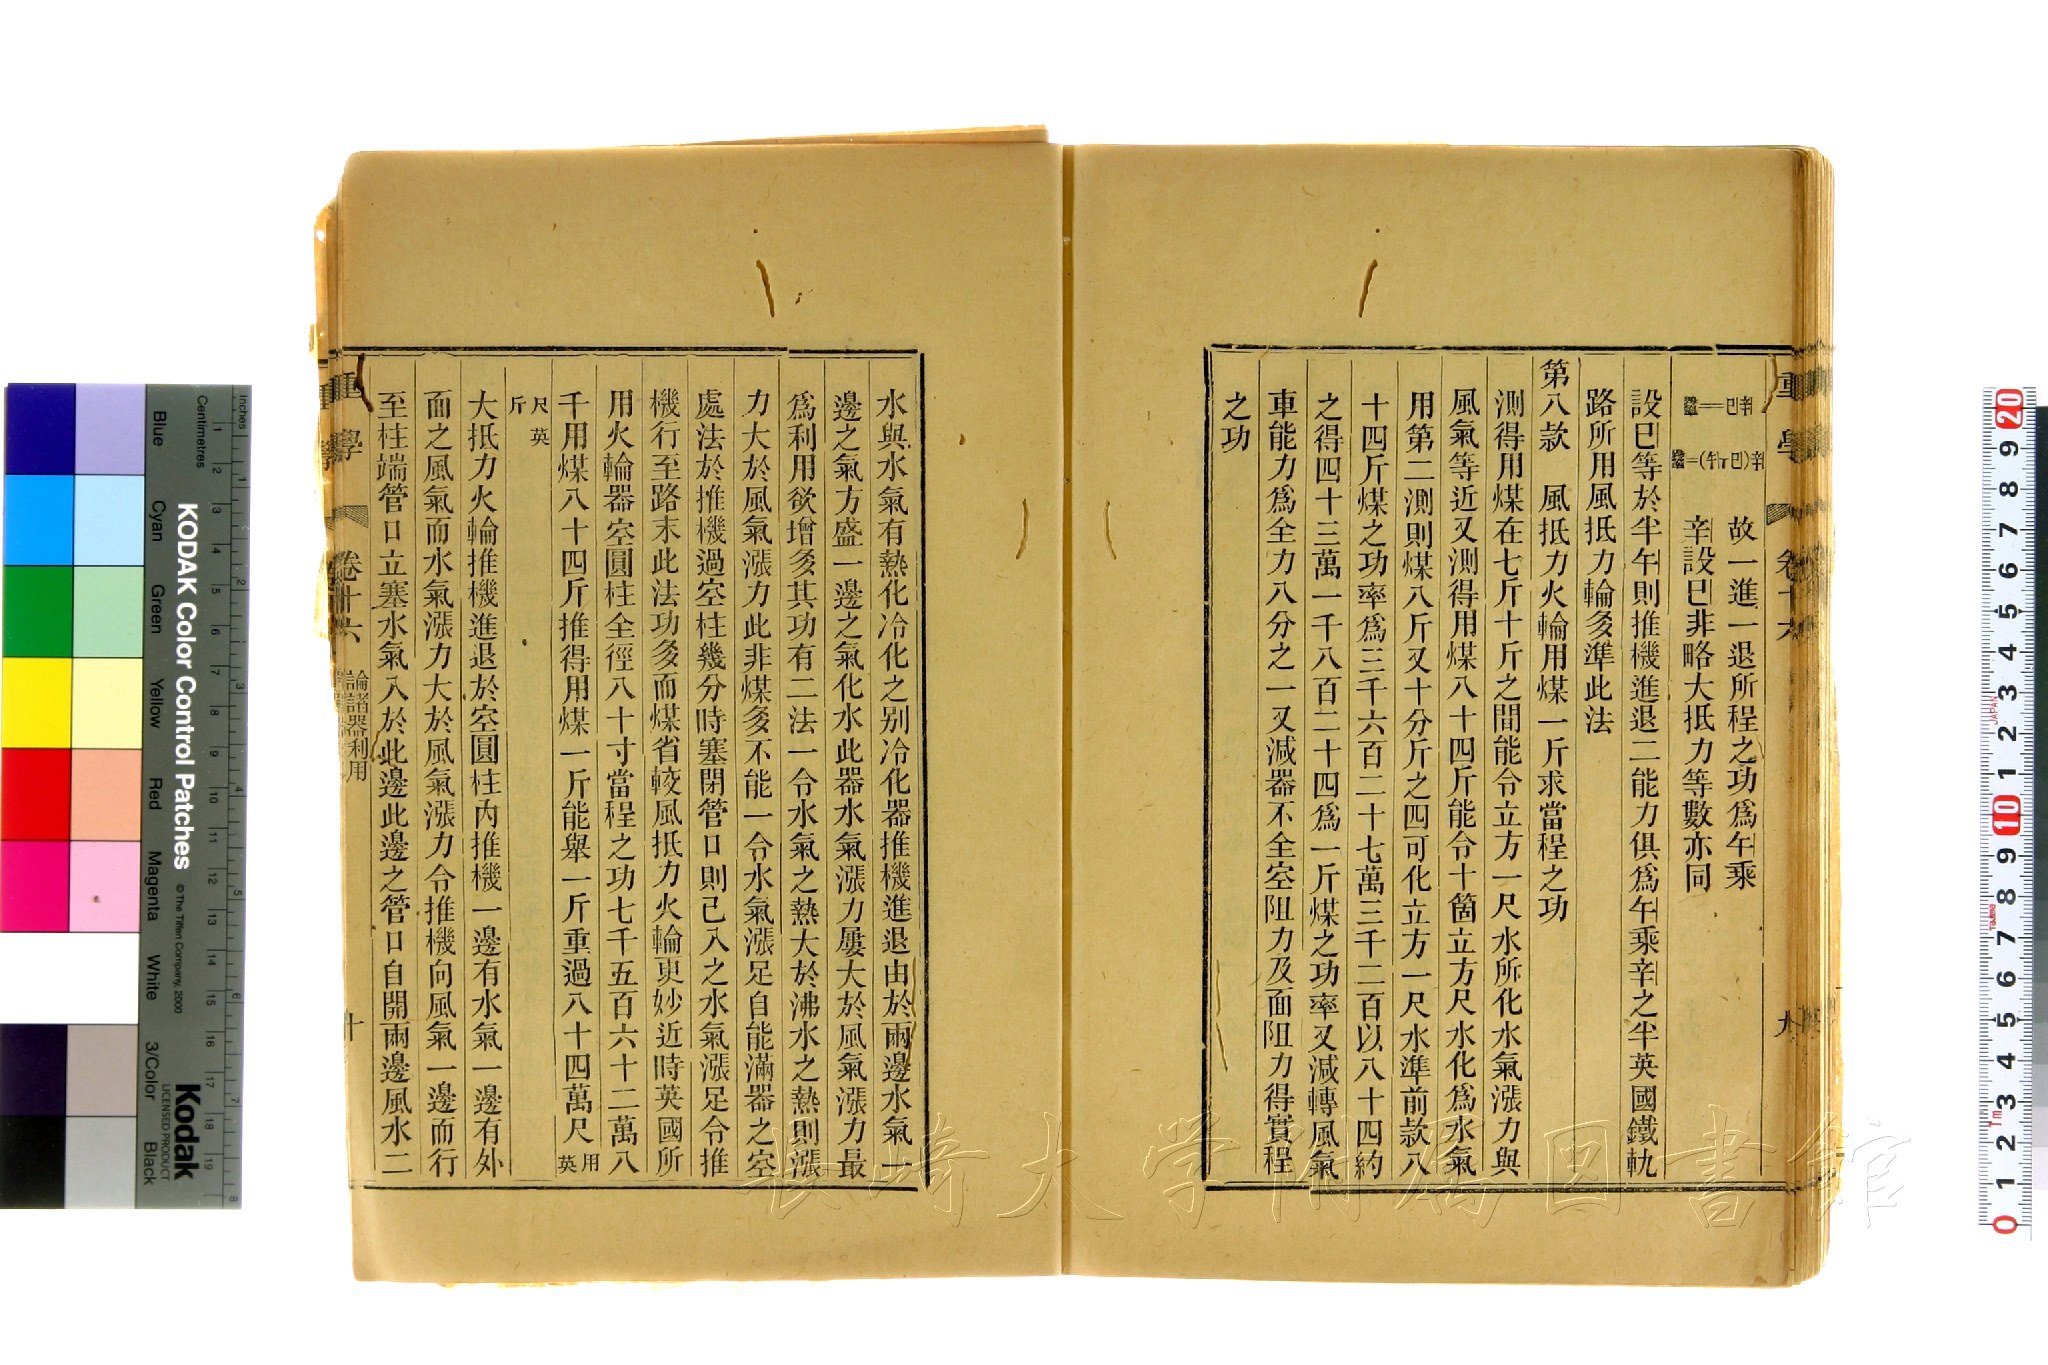 故一進一退所程之功爲午乘
辛設巳非略大抵力等數亦同
設巳等於半午則推機進退二能力俱爲午乘辛之半英國鐵軌
路所用風抵力輪多準此法
第八款　風抵力火輪用煤一斤求當程之功
測得用煤在七斤十斤之間能令立方一尺水所化水氣漲力與
風氣等近又測得用煤八十四斤能令十箇立方尺水化爲水氣
用第二測則煤八斤又十分斤之四可化立方一尺水準前款八
十四斤煤之功率爲三千六百二十七萬三千二百以八十四約
之得四十三萬一千八百二十四爲一斤煤之功率又減轉風氣
車能力爲全力八分之一又減器不全空阻力及面阻力得實程
之功
重學　卷十六　九
水與水氣有熱化冷化之别冷化器推機進退由於兩邊水氣一
邊之氣方盛一邊之氣化水此器水氣漲力屢大於風氣漲力最
爲利用欲增多其功有二法一令水氣之熱大於沸水之熱則漲
力大於風氣漲力此非煤多不能一令水氣漲足自能滿器之空
處法於推機過空柱幾分時塞閉管口則已入之水氣漲足令推
機行至路末此法功多而煤省較風抵力火輪更妙近時英國所
用火輪器空圓柱全徑八十寸當程之功七千五百六十二萬八
千用煤八十四斤推得用煤一斤能舉一斤重過八十四萬尺用英
尺英
斤
大抵力火輪推機進退於空圓柱內推機一邊有水氣一邊有外
面之風氣而水氣漲力大於風氣漲力令推機向風氣一邊而行
至柱端管口立塞水氣入於此邊此邊之管口自開兩邊風水二
重學　卷十六　論諸器利用　十
長崎大学附属図書館
KODAK Color Control Patches
©The Tiffen Company, 2000
Kodak
LICENSED PRODUCT
Inches
Centimetres
Blue Cyan Green Yellow Red Magenta White 3/Color Black
JAPAN